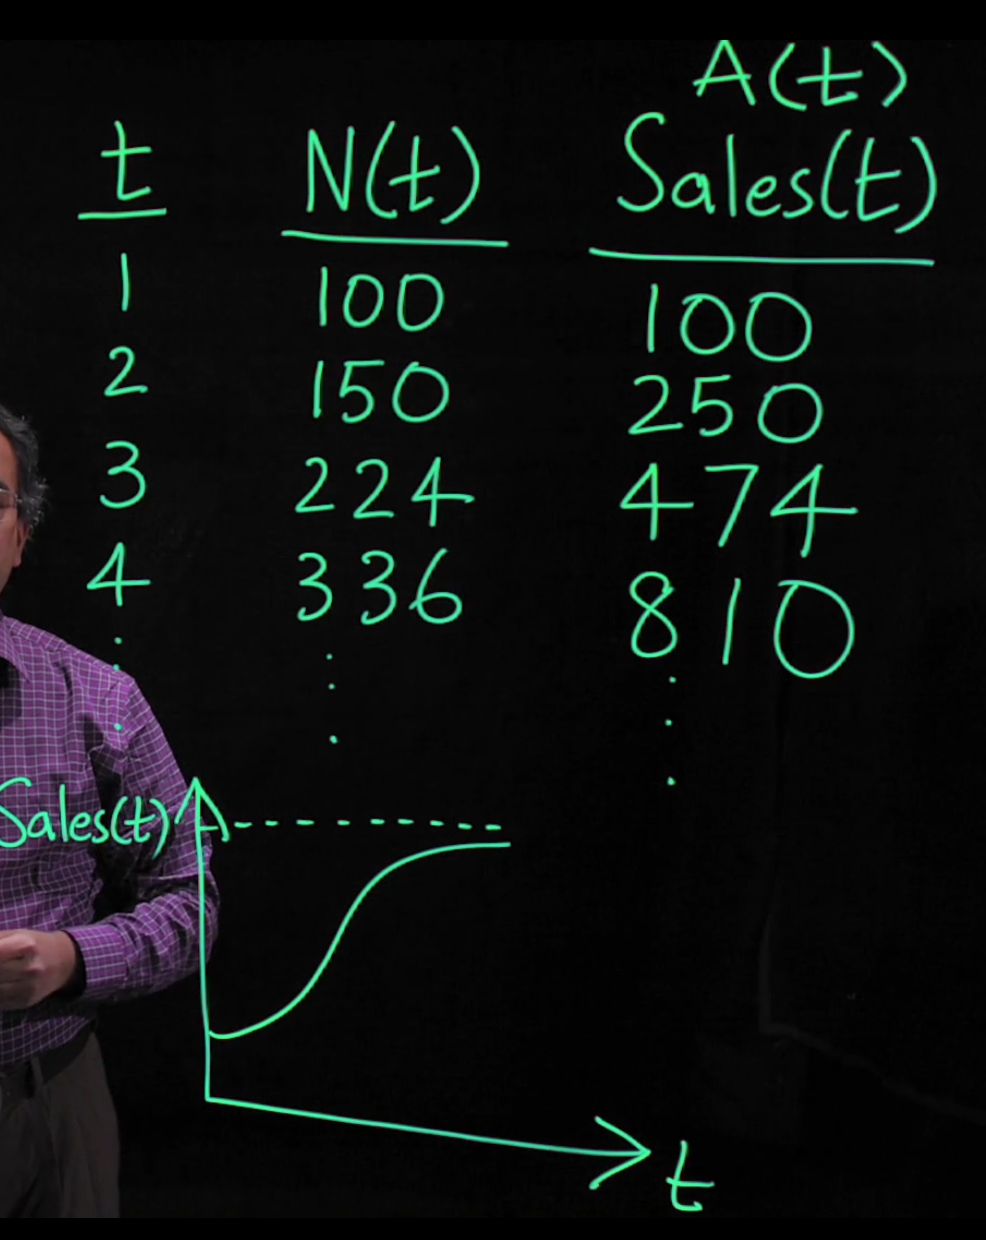 A(t)
t N(t) Sales(t)
1 100 100
2 150 250
3 224 474
4 336 810
Sales(t)
t